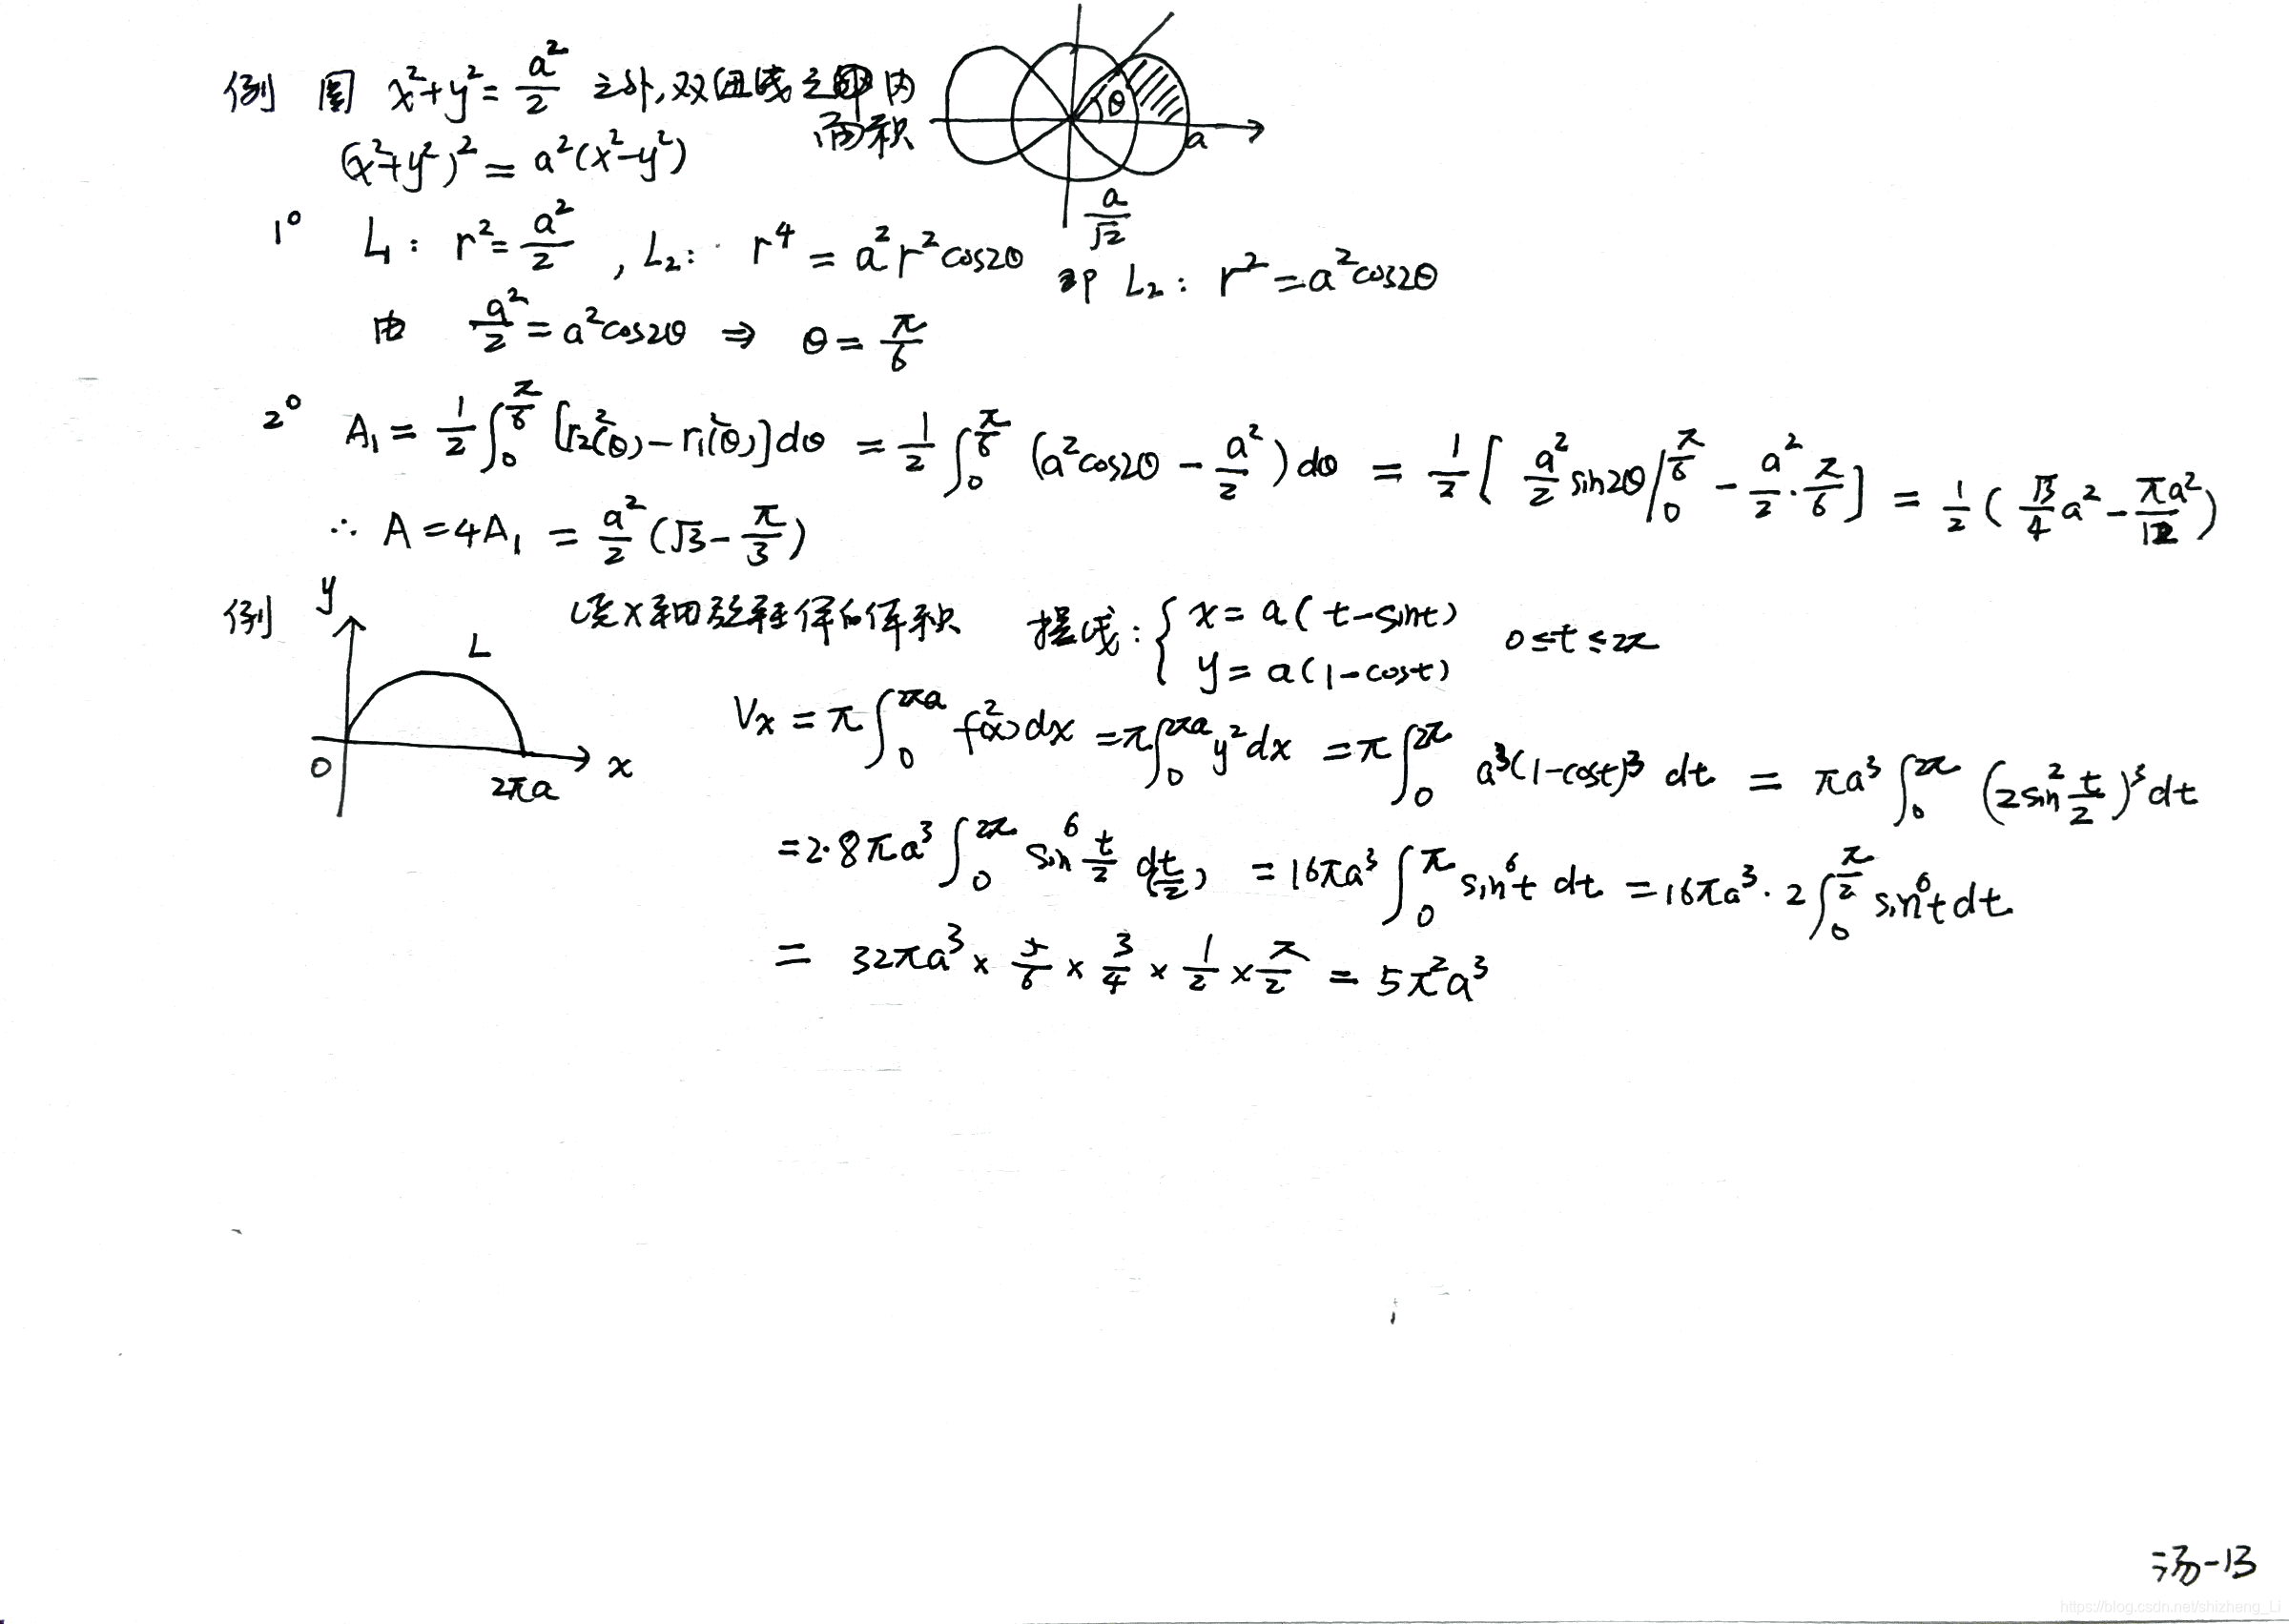 例 圆 x²+y²=a²/2 之外,双纽线之内
面积
(x²+y²)²=a²(x²-y²)
θ
a
a/√2
1° L₁: r²=a²/2 , L₂: r⁴=a²r²cos2θ 即 L₂: r²=a²cos2θ
由 a²/2=a²cos2θ ⇒ θ=π/6
2° A₁=1/2∫₀^(π/6)[r₂²(θ)-r₁²(θ)]dθ=1/2∫₀^(π/6)(a²cos2θ-a²/2)dθ=1/2[a²/2 sin2θ|₀^(π/6)-a²/2·π/6]=1/2(√3/4 a²-πa²/12)
∴ A=4A₁=a²/2(√3-π/3)
例 绕x轴旋转体的体积 摆线:{x=a(t-sint) y=a(1-cost) 0≤t≤2π
y
L
O
2πa
x
Vx=π∫₀^(2πa)f²(x)dx=π∫₀^(2πa)y²dx=π∫₀^(2π)a³(1-cost)³dt=πa³∫₀^(2π)(2sin²t/2)³dt
=2·8πa³∫₀^(2π)sin⁶ t/2 d(t/2)=16πa³∫₀^π sin⁶t dt=16πa³·2∫₀^(π/2)sin⁶t dt
=32πa³×5/6×3/4×1/2×π/2=5π²a³
汤-13
https://blog.csdn.net/shizheng_Li